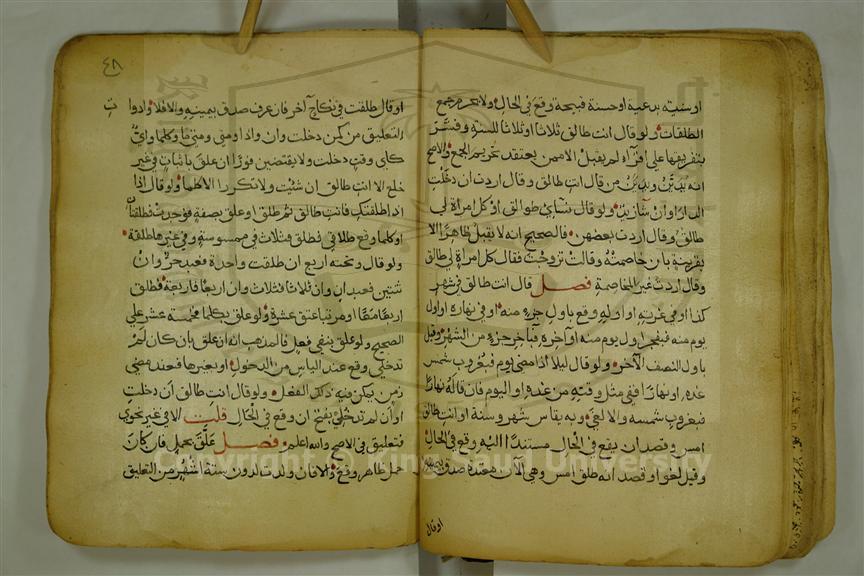 او سنية بدعية او حسنة قبيحة وقع في الحال ولا يحرم جمع
الطلقات ولو قال انت طالق ثلاثا او ثلاثا للسنة وفسر
بتفريقها على اقراء لم يقبل الا ممن يعتقد تحريم الجمع والاصح
انه يدين ويدين من قال انت طالق وقال اردت ان دخلت
الدار او ان شاء زيد ولو قال نسائي طوالق او كل امراة لي
طالق وقال اردت بعضهن فالصحيح انه لا يقبل ظاهرا الا
بقرينة بان خاصمته وقالت تزوجت فقال كل امراة لي طالق
وقال اردت غير المخاصمة فصل قال انت طالق في شهر
كذا او في غرته او اوله وقع باول جزء منه او في نهاره او اول
يوم منه فبفجر اول يوم منه او آخره فبآخر جزء من الشهر وقيل
باول النصف الآخر ولو قال ليلا اذا مضى يوم فبغروب شمس
غده او نهارا ففي مثل وقته من غده او اليوم فان قاله نهارا
فبغروب شمسه والا لغي وبه يقاس شهر وسنة او انت طالق
امس وقصد ان يقع في الحال مستندا اليه وقع في الحال
وقيل لغو او قصد انه طلق امس وهي الآن معتدة صدق بيمينه
او قال
٤٨
او قال طلقت في نكاح آخر فان عرف صدق بيمينه والا فلا وادوا
ت
التعليق من كمن دخلت وان واذا ومتى ومتى ما وكلما واي
كاي وقت دخلت ولا يقتضين فورا ان علق باثبات في غير
خلع الا انت طالق ان شئت ولا تكررا الا كلما ولو قال اذا
طلقتك فانت طالق ثم طلق او علق بصفة فوجدت فطلقتان
او كلما وقع طلاقي فطلق فثلاث في ممسوسة وفي غيرها طلقة
ولو قال وتحته اربع ان طلقت واحدة فعبد حر وان
ثنتين فعبدان وان ثلاثا فثلاث وان اربعا فاربعة فطلق
اربعا معا او مرتبا عتق عشرة ولو علق بكلما فخمسة عشر على
الصحيح ولو علق بنفي فعل فالمذهب انه ان علق بان كان لم
تدخلي وقع عند الياس من الدخول او بغيرها فعند مضي
زمن يمكن فيه ذلك الفعل ولو قال انت طالق ان دخلت
او ان لم تدخلي بفتح ان وقع في الحال قلت الا في غير نحوي
فتعليق في الاصح والله اعلم فصل علق بحمل فان كان
حمل ظاهر وقع والا فان ولدت لدون ستة اشهر من التعليق
Copyright © King Saud University